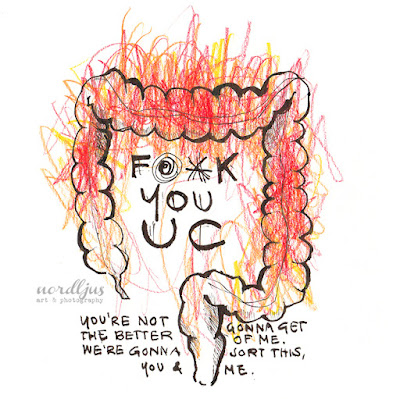 F@*K
YOU
UC
nordljus
art & photography
YOU'RE NOT GONNA GET
THE BETTER OF ME.
WE'RE GONNA SORT THIS,
YOU & ME.